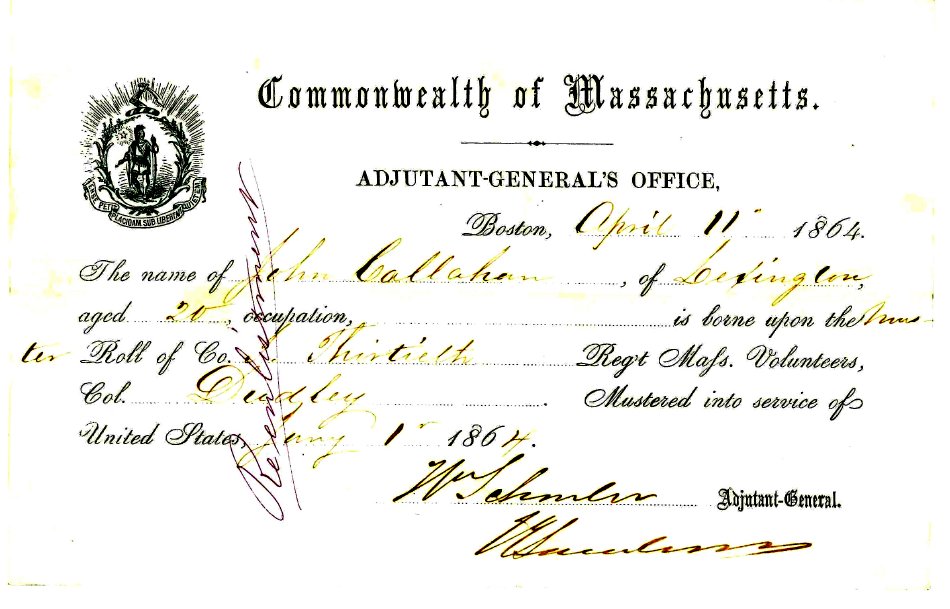 Commonwealth of Massachusetts.
ADJUTANT-GENERAL'S OFFICE,
Boston, April 11" 1864.
The name of John Callahan, of Lexington,
aged 20, occupation, is borne upon the Mus-
ter Roll of Co. Thirtieth Reg't Mass. Volunteers,
Col. Dudley. Mustered into service of
United States Jany 1" 1864.
Wm Schouler Adjutant-General.
Reenlistment
ENSE PETIT PLACIDAM SUB LIBERTATE QUIETEM